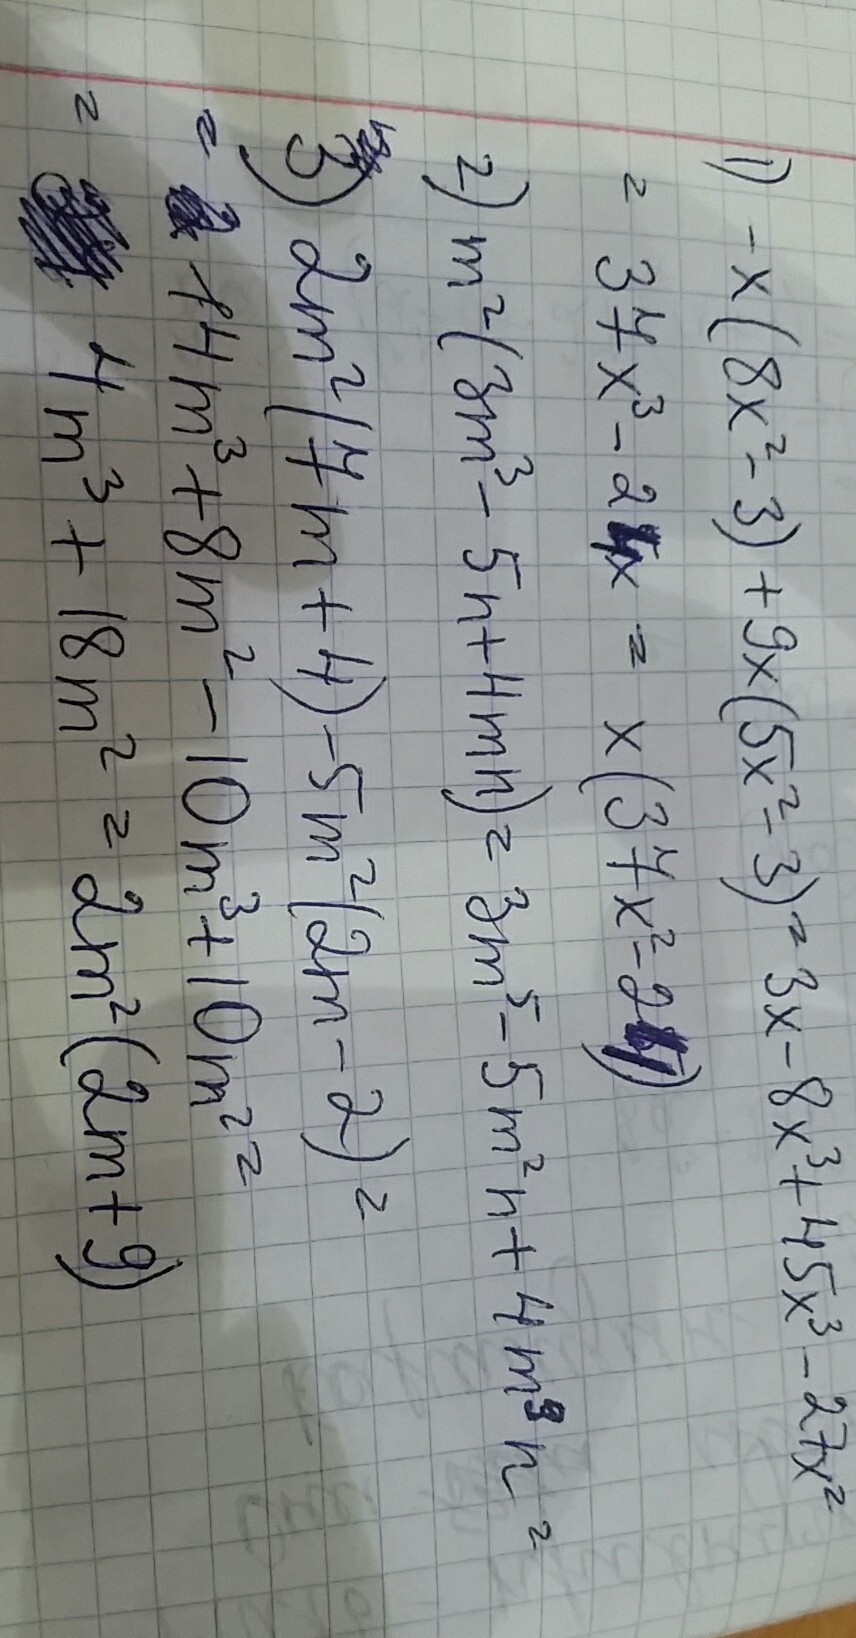 1) -x(8x²-3)+9x(5x²-3)=3x-8x³+45x³-27x=
= 37x³-24x = x(37x²-24)
2) m²(3m³-5n+4mn)=3m⁵-5m²n+4m³n=
3) 2m²(7m+4)-5m²(2m-2)=
= 14m³+8m²-10m³+10m²=
= 4m³+18m²=2m²(2m+9)